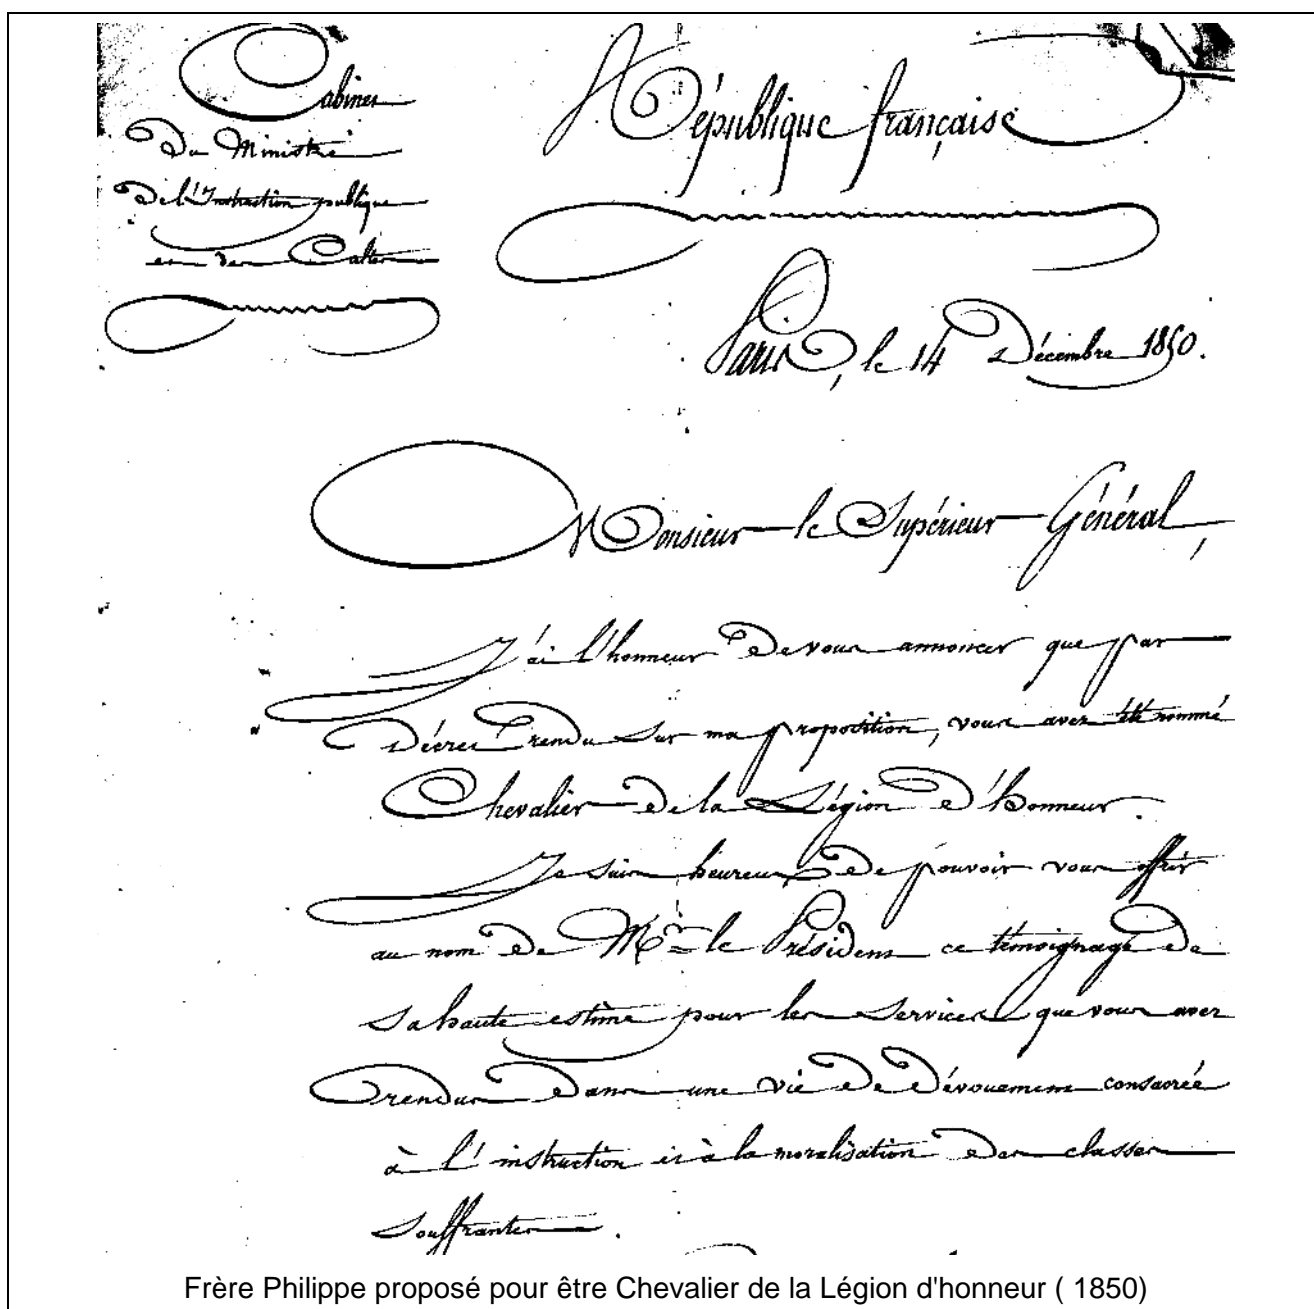 Cabinet
Du Ministre
de l'Instruction publique
et des Cultes
République française
Paris, le 14 Décembre 1850.
Monsieur le Supérieur Général,
J'ai l'honneur de vous annoncer que par
Décret rendu sur ma proposition, vous avez été nommé
Chevalier de la Légion d'honneur.
Je suis heureux de pouvoir vous offrir
au nom de Mr le Président ce témoignage de
sa haute estime pour les services que vous avez
rendus dans une vie de dévouement consacrée
à l'instruction et à la moralisation des classes
souffrantes.
Frère Philippe proposé pour être Chevalier de la Légion d'honneur ( 1850)